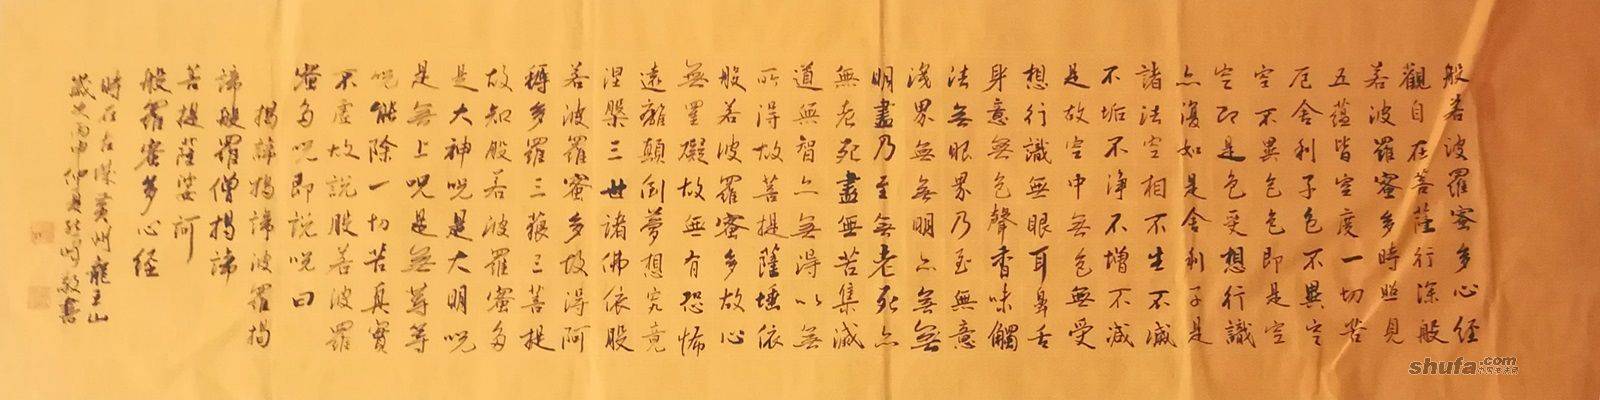 般若波羅蜜多心经
觀自在菩薩行深般
若波羅蜜多時照見
五蕴皆空度一切苦
厄舍利子色不異空
空不異色色即是空
空即是色受想行識
亦復如是舍利子是
諸法空相不生不滅
不垢不净不增不减
是故空中無色無受
想行識無眼耳鼻舌
身意無色聲香味觸
法無眼界乃至無意
識界無無明亦無無
明盡乃至無老死亦
無老死盡無苦集滅
道無智亦無得以無
所得故菩提薩埵依
般若波羅蜜多故心
無罣礙故無有恐怖
遠離顛倒夢想究竟
涅槃三世諸佛依般
若波羅蜜多故得阿
耨多羅三藐三菩提
故知般若波羅蜜多
是大神咒是大明咒
是無上咒是無等等
咒能除一切苦真實
不虛故說般若波羅
蜜多咒即說咒曰
揭諦揭諦波羅揭
諦般羅僧揭諦
菩提薩婆訶
般羅蜜多心经
時在古黄州龍王山
歲次丙申仲夏敬書
shufa.com